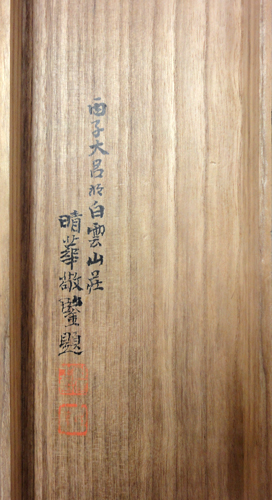 丙子大呂於白雲山荘
晴華敬鑒題